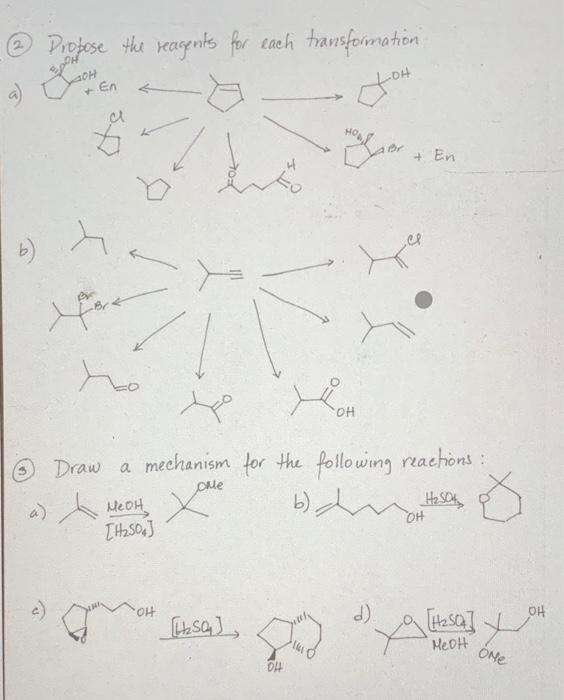 ② Propose the reagents for each transformation
a)
OH
OH
+ En
OH
Cl
HO
Br
+ En
O
H
O
b)
Cl
Br
Br
O
O
O
OH
③ Draw a mechanism for the following reactions:
a)
MeOH
[H2SO4]
OMe
b)
OH
H2SO4
O
c)
O
OH
[H2SO4]
OH
O
d)
O
[H2SO4]
MeOH
OH
OMe